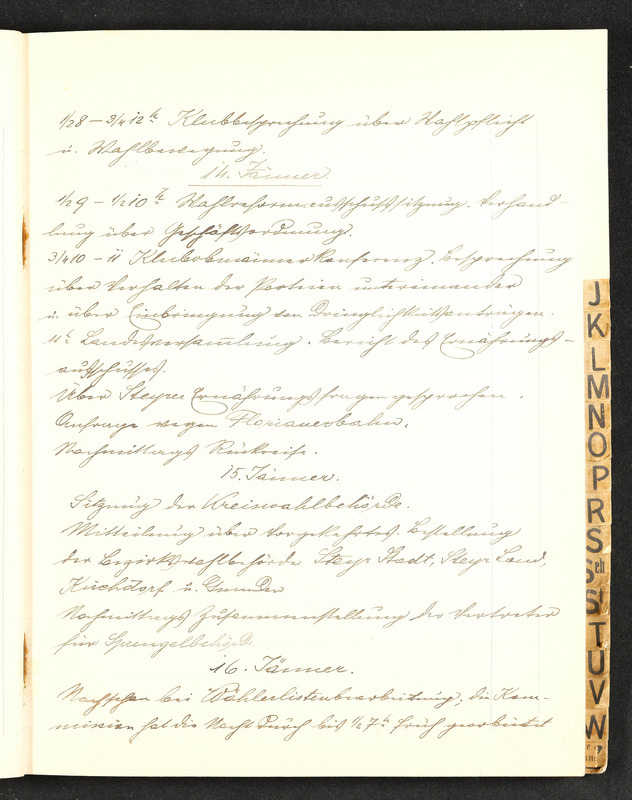 1/28 – 3/4 12h Klubbesprechung über Wahlpflicht
u. Wahlbewegung.
14. Jänner
1/29 – 1/2 10h Wahlreformausschußsitzung. Verhand-
lung über Geschäftsordnung.
3/4 10 – 11 Klubobmännerkonferenz. Besprechung
über Verhalten der Parteien untereinander
u. über Einbringung von Dringlichkeitsanträgen.
11h Landesversammlung. Bericht des Ernährungs-
ausschusses.
Über Steyrer Ernährungsfragen gesprochen.
Anfrage wegen Florianerbahn.
Nachmittags Rückreise.
15. Jänner.
Sitzung der Kreiswahlbehörde.
Mitteilung über Vorgekehrtes. Bestellung
der Bezirkswahlbehörde Steyr Stadt, Steyr Land,
Kirchdorf u. Gmunden
Nachmittags Zusammenstellung der Vertreter
für Sprengelbehörde.
16. Jänner.
Nachsehen bei Wählerlistenbearbeitung; die Kom-
mission hat die Nacht durch bis 1/2 7h früh gearbeitet
J
K
L
M
N
O
P
R
S
Sch
St
T
U
V
W